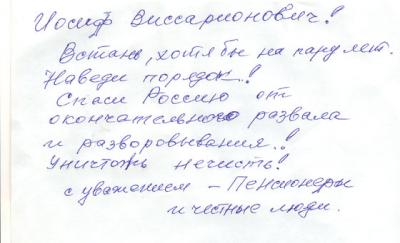 Иосиф Виссарионович!
Встань, хотя бы на пару лет.
Наведи порядок!
Спаси Россию от
окончательного развала
и разворовывания!
Уничтожь нечисть!
с уважением - Пенсионеры
и честные люди.